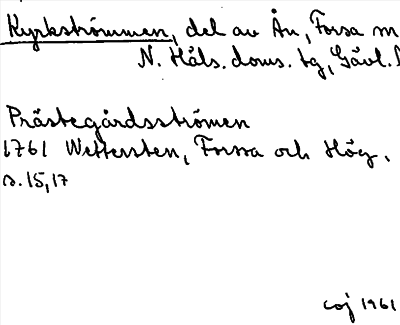 Kyrkströmmen, del av Ån, Forsa
N. Häls. doms. tg, Gävl.
Prästegårdsströmen
1761 Wettersten, Forssa och Hög,
s. 15, 17
coj 1961